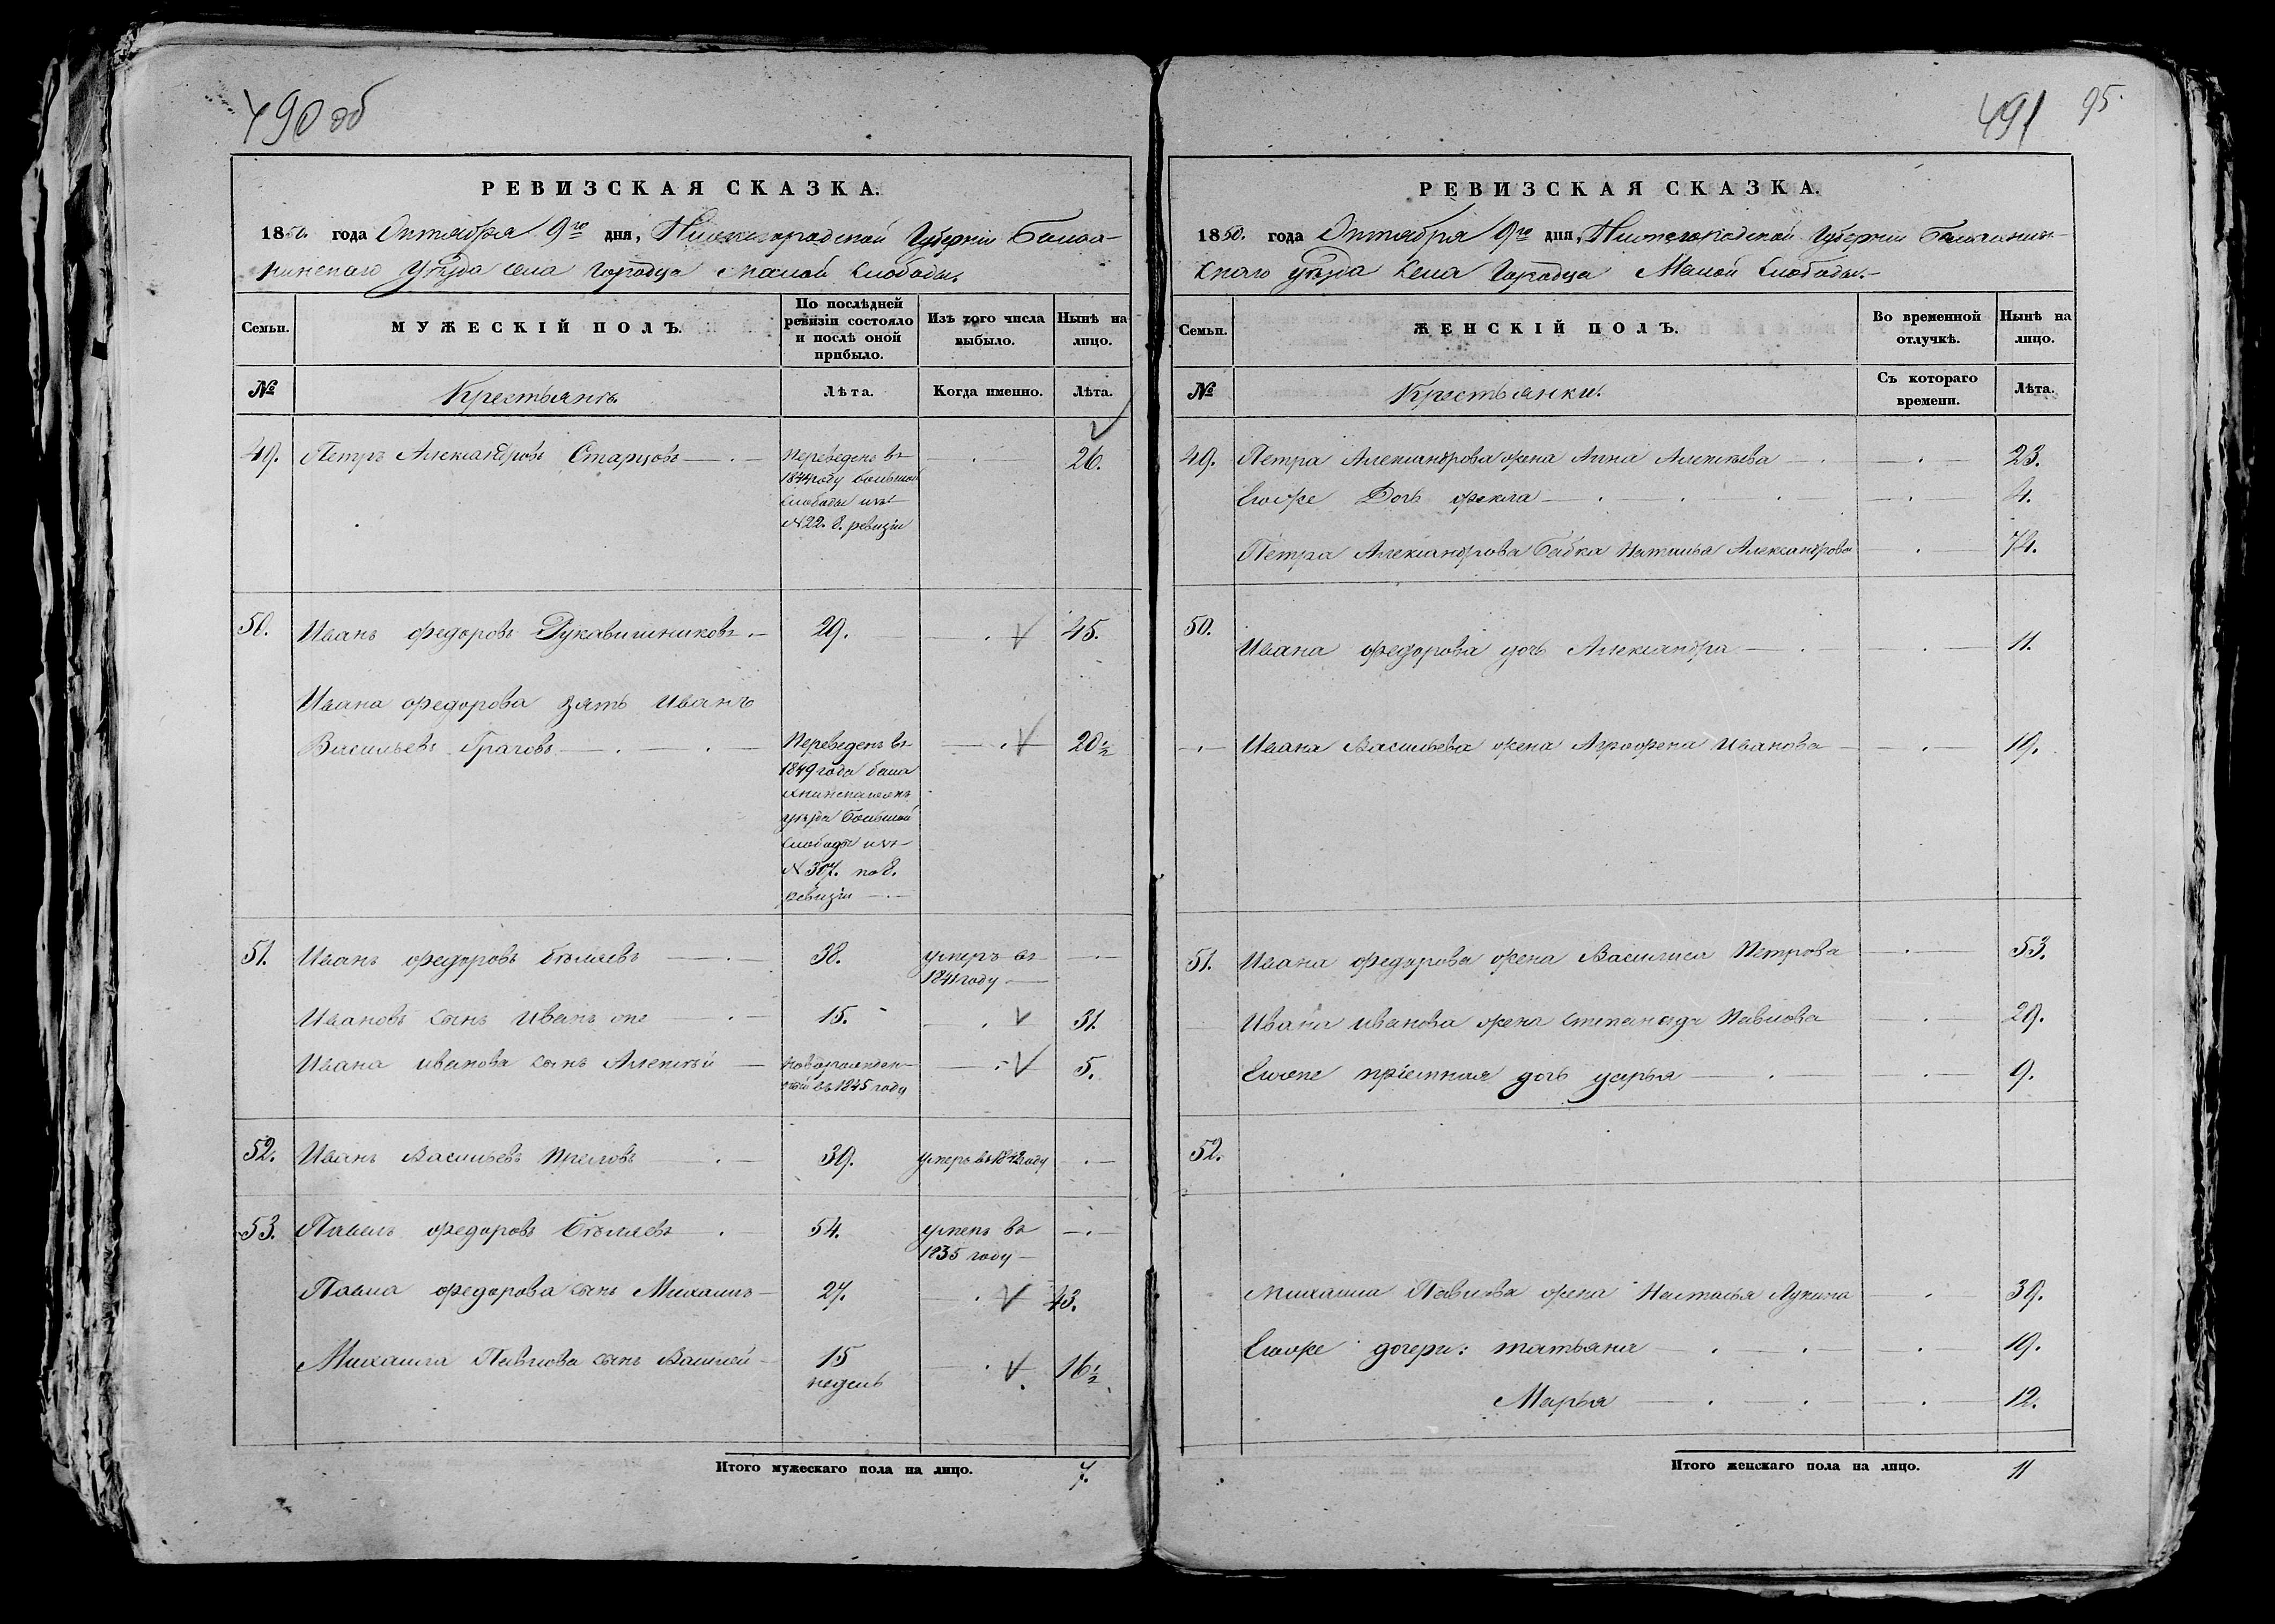 490 об
РЕВИЗСКАЯ СКАЗКА.
1850. года Октября 9го дня, Нижегородской Губерніи Балах-
нинскаго Уѣзда села Городца малой слободы.
Семьи.
МУЖЕСКІЙ ПОЛЪ.
По послѣдней ревизіи состояло и послѣ оной прибыло.
Изъ того числа выбыло.
Нынѣ на лицо.
№
Крестьянъ
Лѣта.
Когда именно.
Лѣта.
49. Петръ Александровъ Старцовъ
Переведенъ въ
1844 году большой
слободы изъ
№ 22. 8. ревизіи
26.
50. Иванъ Федоровъ Рукавишниковъ 29. 45.
Ивана Федорова зять Иванъ
Васильевъ Грачовъ
Переведенъ въ
1849 года Бала
хнинскаго
уѣзда большой
слободы изъ
№ 307. по 8.
ревизіи
20 1/2
51. Иванъ Федоровъ Бѣляевъ 38. умеръ въ
1841 году
Ивановъ сынъ Иванъ же 15. 31.
Ивана Иванова сынъ Алексѣй новорожден-
ной въ 1845 году 5.
52. Иванъ Васильевъ 39. умеръ въ 1842 году
53. Павелъ Федоровъ Бѣляевъ 54. умеръ въ
1835 году
Павла Федорова сынъ Михаилъ 27. 43.
Михаила Павлова сынъ Василій 15
недель 16 1/2
Итого мужескаго пола на лицо. 7.
491 95.
РЕВИЗСКАЯ СКАЗКА.
1850. года Октября 9го дня, Нижегородской Губерніи Балахнин-
скаго уѣзда села Городца Малой слободы.
Семьи.
ЖЕНСКІЙ ПОЛЪ.
Во временной отлучкѣ.
Нынѣ на лицо.
№
Крестьянки.
Съ котораго времени.
Лѣта.
49. Петра Александрова жена Анна Алексѣева 23.
Егоже Дочь Фекла 4.
Петра Александрова бабка Наталья Александрова 74.
50.
Ивана Федорова дочь Александра 11.
Ивана Васильева жена Аграфена Иванова 19.
51. Ивана Федорова жена Василиса Петрова 53.
Ивана Иванова жена Степанида Павлова 29.
Егоже пріемная дочь Дарья 9.
52.
Михаила Павлова жена Настасья Лукина 39.
Егоже дочери: Татьяна 19.
Марья 12.
Итого женскаго пола на лицо. 11